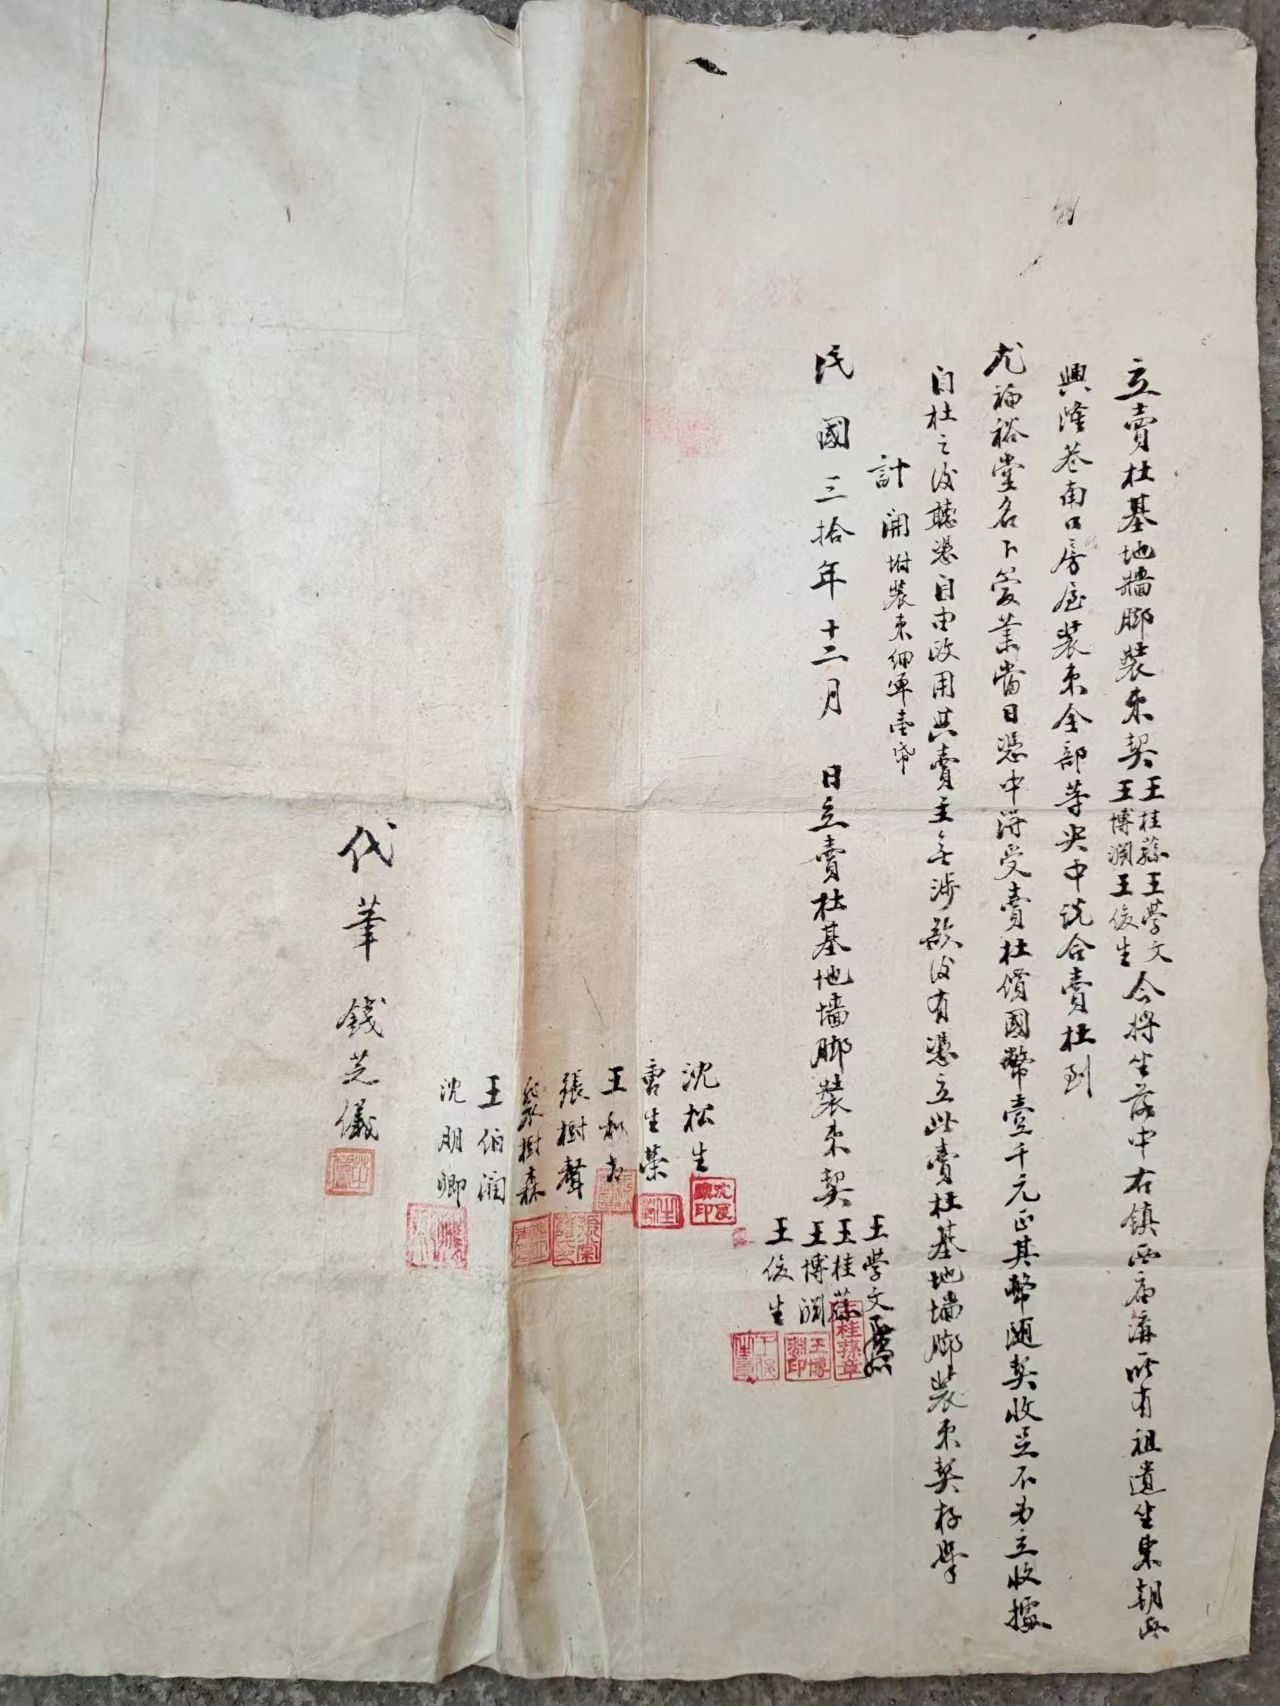 立賣杜基地牆腳裝束契王桂蓀王學文
王博淵王俊生今將坐落中右鎮西廟溝所有祖遺坐東朝西
興隆巷南口房屋裝束全部等央中說合賣杜到
尤福裕堂名下管業當日憑中得受賣杜價國幣壹千元正其幣隨契收足不另立收據
自杜之後聽憑自由改用與賣主無涉欲後有憑立此賣杜基地墻腳裝束契存照
計開 坿裝束細單壹帋
民國三拾年十二月 日立賣杜基地墻腳裝束契
王學文
王桂蓀
王博淵
王俊生
沈松生
曹生榮
王
張樹聲
樹森
王伯潤
沈朋卿
代筆 錢芝儀
王桂蓀章
王博淵印